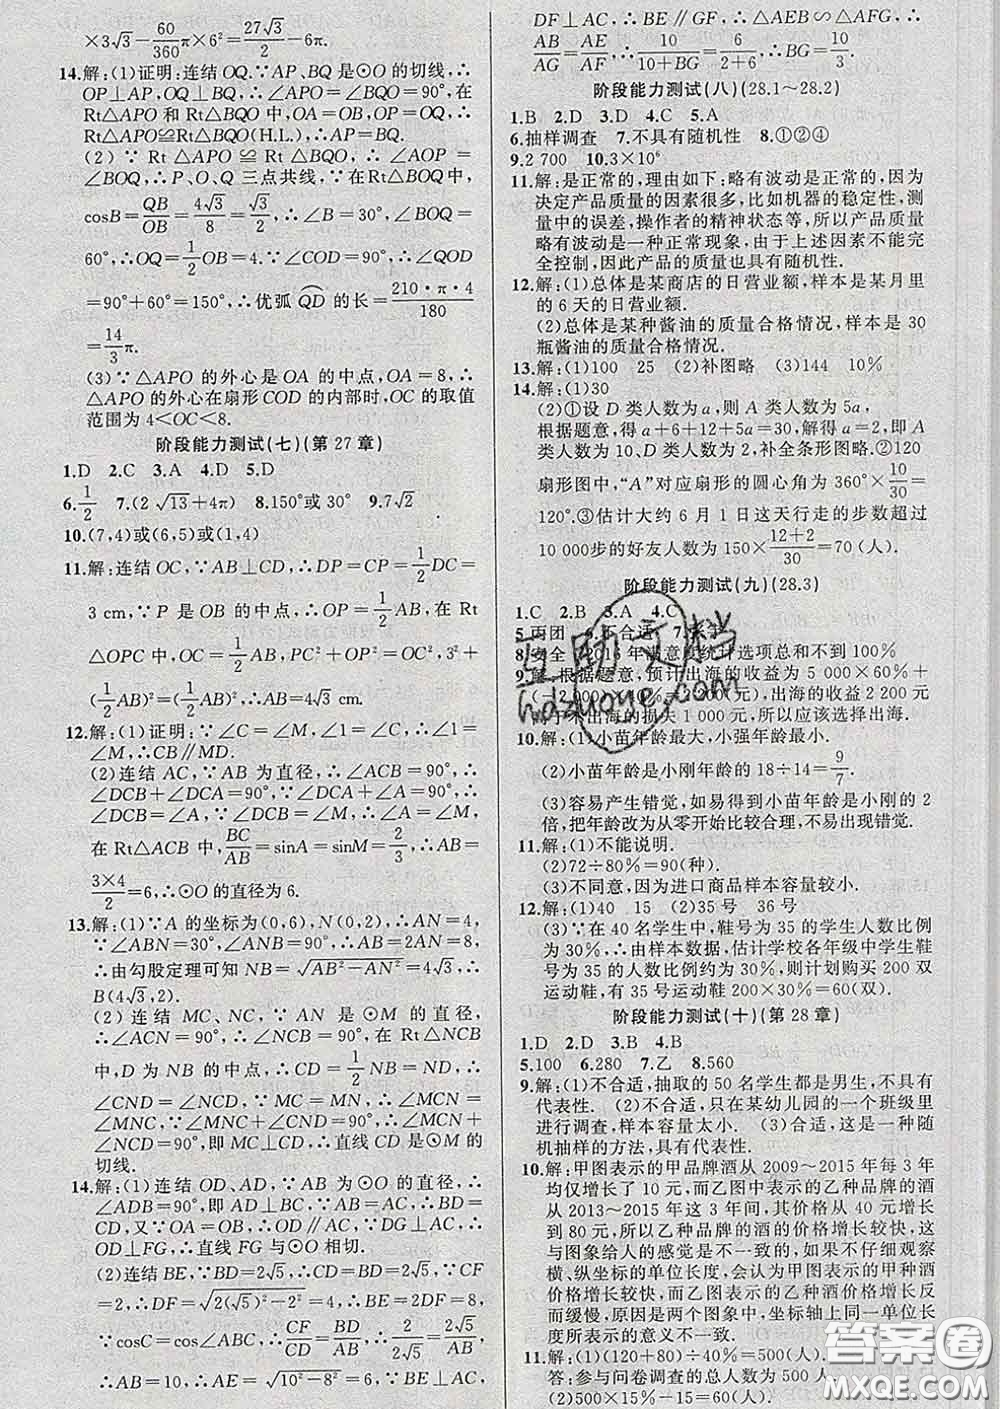 ×3√3−60/360π×6²=27√3/2−6π.
14.解:(1)证明:连结OQ.∵AP、BQ是⊙O的切线,∴
OP⊥AP,OQ⊥BQ,∴∠APO=∠BQO=90°,在
Rt△APO和Rt△BQO中,OA=OB,OP=OQ,
∴Rt△APO≌Rt△BQO(H.L.),∴AP=BQ.
(2)∵Rt△APO≌Rt△BQO,∴∠AOP=
∠BOQ,∴P、O、Q三点共线,∵在Rt△BOQ中,
cosB=QB/OB=4√3/8=√3/2,∴∠B=30°,∠BOQ=
60°,∴OQ=1/2OB=4.∵∠COD=90°,∴∠QOD
=90°+60°=150°,∴优弧QD的长=210·π·4/180
=14/3π.
(3)∵△APO的外心是OA的中点,OA=8,∴
△APO的外心在扇形COD的内部时,OC的取值
范围为4<OC<8.
阶段能力测试(七)(第27章)
1.D 2.C 3.A 4.D 5.D
6.1/2 7.(2√13+4π) 8.150°或30° 9.7√2
10.(7,4)或(6,5)或(1,4)
11.解:连结OC,∵AB⊥CD,∴DP=CP=1/2DC=
3 cm,∵P是OB的中点,∴OP=1/4AB,在Rt
△OPC中,OC=1/2AB,PC²+OP²=OC²,3²+
(1/4AB)²=(1/2AB)²,∴AB=4√3 cm.
12.解:(1)证明:∵∠C=∠M,∠1=∠C,∴∠1=
∠M,∴CB∥MD.
(2)连结AC,∵AB为直径,∴∠ACB=90°,∴
∠DCB+∠DCA=90°,∵∠DCA+∠A=90°,∴
∠DCB=∠A,∵∠DCB=∠M,∴∠A=∠M,∴
在Rt△ACB中,BC/AB=sinA=sinM=2/3,∴AB=
3×4/2=6,∴⊙O的直径为6.
13.解:(1)∵A的坐标为(0,6),N(0,2),∴AN=4,
∵∠ABN=30°,∠ANB=90°,∴AB=2AN=8,
∴由勾股定理可知NB=√AB²−AN²=4√3,∴
B(4√3,2).
(2)连结MC、NC,∵AN是⊙M的直径,
∴∠ACN=90°,∴∠NCB=90°,在Rt△NCB
中,D为NB的中点,∴CD=1/2NB=ND,∴
∠CND=∠NCD,∵MC=MN,∴∠MCN=
∠MNC,∵∠MNC+∠CND=90°,∴∠MCN+
∠NCD=90°,即MC⊥CD,∴直线CD是⊙M的
切线.
14.解:(1)连结OD、AD,∵AB为⊙O的直径,∴
∠ADB=90°,即AD⊥BC,∵AC=AB,∴BD=
CD,又∵OA=OB,∴OD∥AC,∵DG⊥AC,∴
OD⊥FG,∴直线FG与⊙O相切.
(2)连结BE,∵BD=2√5,∴CD=2√5,∵CF
=2,∴DF=√(2√5)²−2²=4,∴BE=2DF=8,
∵cosC=cos∠ABC,∴CF/CD=BD/AB,∴2/2√5=2√5/AB,
∴AB=10,∴AE=√10²−8²=6,∵BE⊥AC,
DF⊥AC,∴BE∥GF,∴△AEB∽△AFG,∴
AB/AG=AE/AF,∴10/10+BG=6/2+6,∴BG=10/3.
阶段能力测试(八)(28.1~28.2)
1.B 2.D 3.D 4.C 5.A
6.抽样调查 7.不具有随机性 8.①②④
9.2 700 10.3×10⁶
11.解:是正常的,理由如下:略有波动是正常的,因为
决定产品质量的因素很多,比如机器的稳定性,测
量中的误差,操作者的精神状态等,所以产品质量
略有波动是一种正常现象,由于上述因素不能完
全控制,因此产品的质量也具有随机性.
12.解:(1)总体是某商店的日营业额,样本是某月里
的6天的日营业额.
(2)总体是某种酱油的质量合格情况,样本是30
瓶酱油的质量合格情况.
13.解:(1)100 25 (2)补图略 (3)144 10%
14.解:(1)30
(2)①设D类人数为a,则A类人数为5a,
根据题意,得a+6+12+5a=30,解得a=2,即A
类人数为10、D类人数为2,补全条形图略.②120
扇形图中,“A”对应扇形的圆心角为360°×10/30=
120°.③估计大约6月1日这天行走的步数超过
10 000步的好友人数为150×12+2/30=70(人).
阶段能力测试(九)(28.3)
1.C 2.B 3.A 4.C
5.丙团 6.不合适
2016年满意度统计选项总和不到100%
9.解:根据题意,预计出海的收益为5 000×60%+
(−2 000)×40%=2 200(元),出海的收益2 200元
大于不出海的损失1 000元,所以应该选择出海.
10.解:(1)小苗年龄最大,小强年龄最小.
(2)小苗年龄是小刚年龄的18÷14=9/7.
(3)容易产生错觉,如易得到小苗年龄是小刚的2
倍,把年龄改为从零开始比较合理,不易出现错觉.
11.解:(1)不能说明.
(2)72÷80%=90(种).
(3)不同意,因为进口商品样本容量较小.
12.解:(1)40 15 (2)35号 36号
(3)∵在40名学生中,鞋号为35的学生人数比例
为30%,∴由样本数据,估计学校各年级中学生鞋
号为35的人数比例约为30%,则计划购买200双
运动鞋,有35号运动鞋200×30%=60(双).
阶段能力测试(十)(第28章)
1.D 2.D 3.B 4.B
5.100 6.280 7.乙 8.560
9.解:(1)不合适,抽取的50名学生都是男生,不具有
代表性. (2)不合适,只在某幼儿园的一个班级里
进行调查,样本容量太小. (3)合适,这是一种随
机抽样的方法,具有代表性.
10.解:甲图表示的甲品牌酒从2009~2015年每3年
均仅增长了10元,而乙图中表示的乙种品牌的酒
从2013~2015年这3年间,其价格增长从40元
到80元,所以乙种品牌的酒的价格增长较快,这
与图象给人的感觉是不一致的,如果不仔细观察
横、纵坐标的单位长度,会认为甲图表示的甲种酒
价格增长较快而乙图表示的乙种酒的价格增长反
而缓慢,原因是两个图象中,坐标轴上同一单位长
度所表示的意义不一致.
11.解:(1)(120+80)÷40%=500(人).
答:参与问卷调查的总人数为500人.
(2)500×15%−15=60(人).
互助文档
hdzuoye.com
答案圈
MXQE.COM